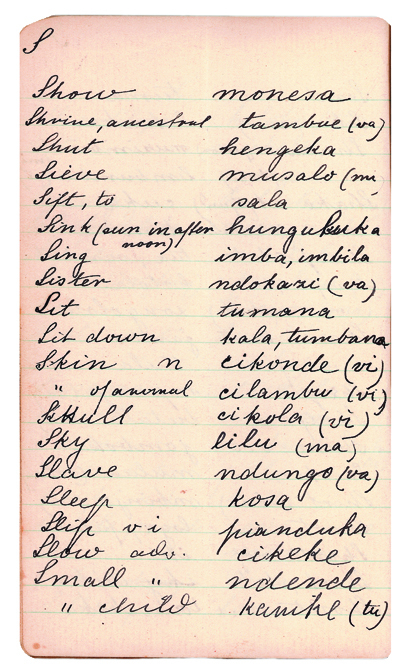 S
Show monesa
Shrine, ancestral tambue (va)
Shut hengeka
Sieve musalo (mi
Sift, to sala
Sink (sun in after hungukuka
noon)
Sing imba, imbila
Sister ndokazi (va)
Sit tumana
Sit down kala, tumbana
Skin n cikonde (vi)
" of animal cilambu (vi)
Skull cikola (vi)
Sky lilu (ma)
Slave ndungo (va)
Sleep kosa
Slip v i pianduka
Slow adv. cikeke
Small " ndende
" child (tu)